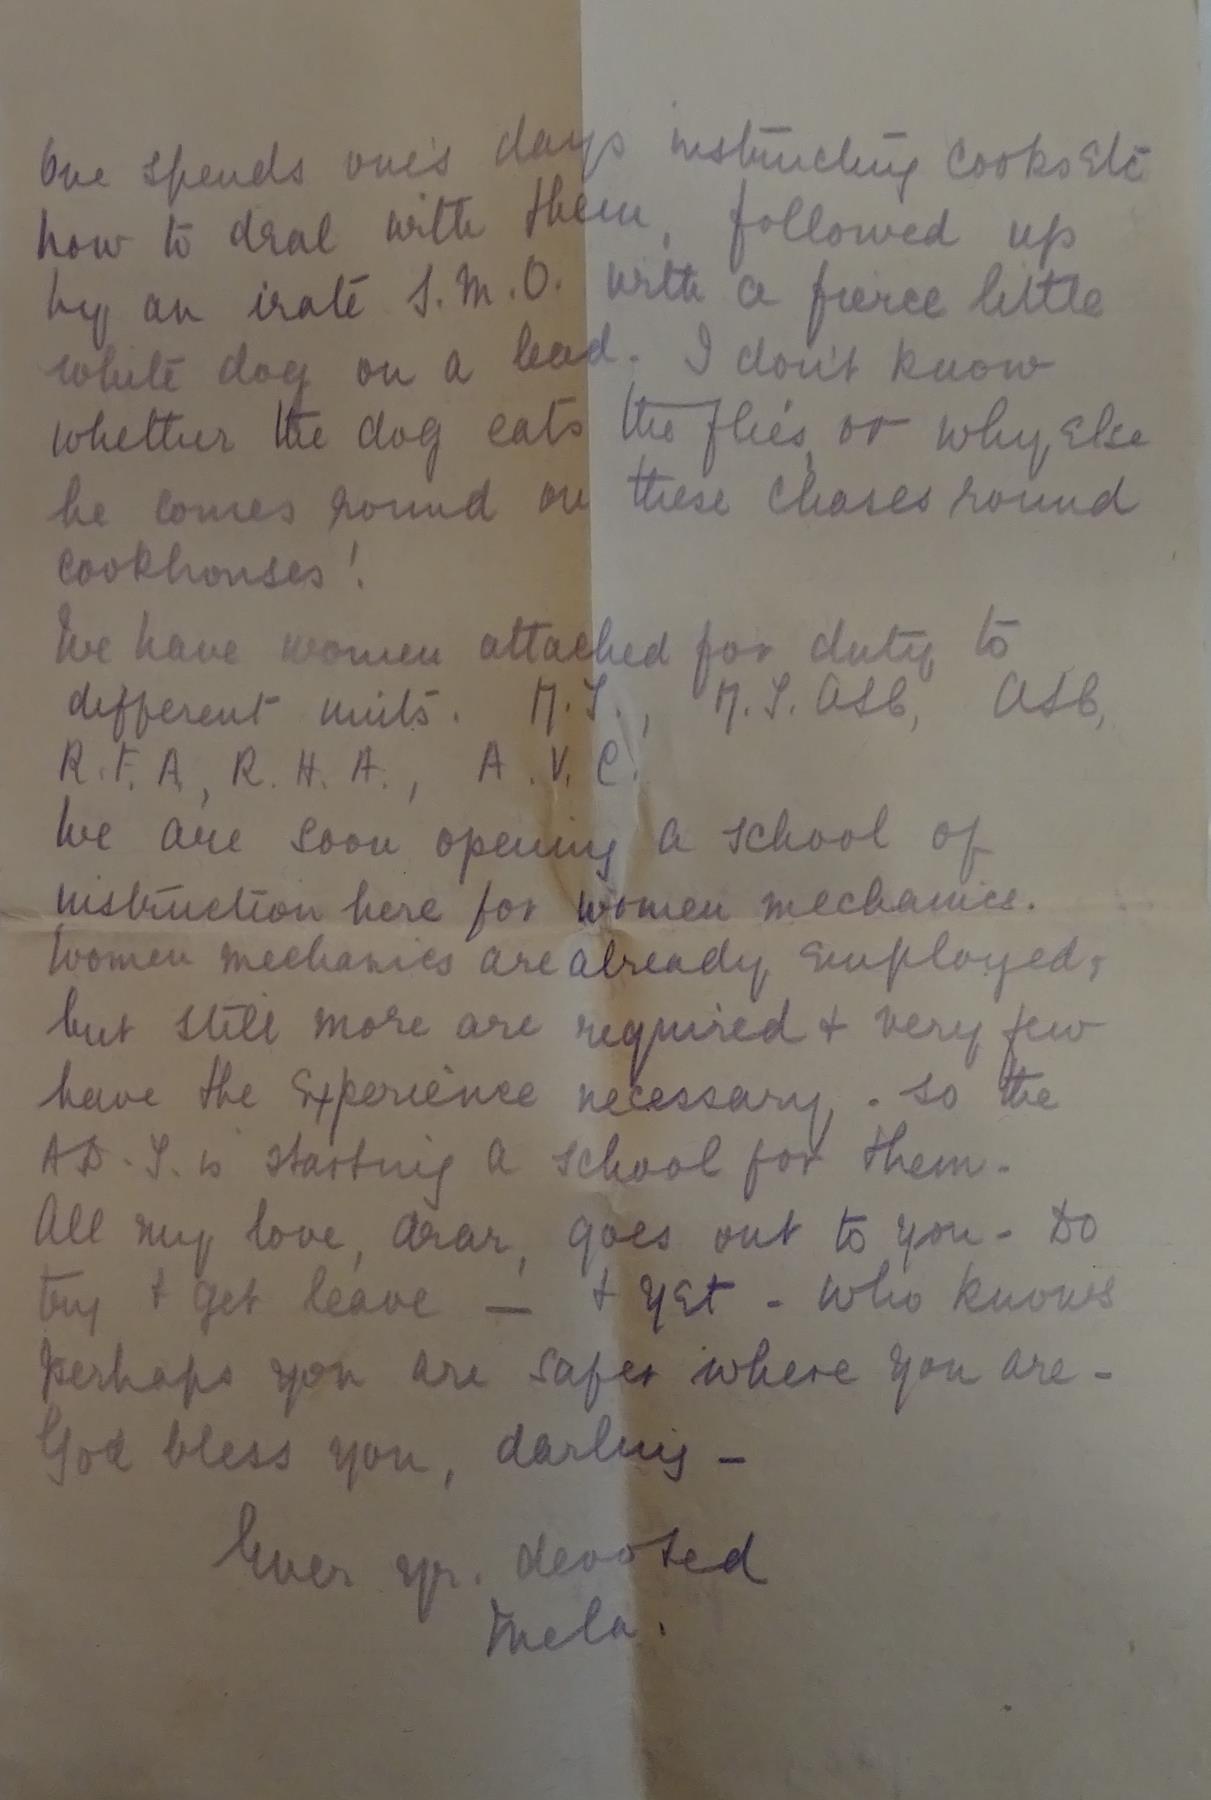 One spends one's days instructing cooks Etc
how to deal with them, followed up
by an irate S.M.O. with a fierce little
white dog on a lead. I don't know
whether the dog eats the flies, or why Else
he comes round on these chases round
cookhouses!
We have women attached for duty to
different units. M.T., M.T. ASC, ASC,
R.F.A, R.H.A., A.V.C.
We are soon opening a school of
instruction here for women mechanics.
Women mechanics are already Employed,
but still more are required & very few
have the Experience necessary, - so the
AD.T. is starting a school for them -
All my love, dear, goes out to you - Do
try & get leave — & yEt - who knows
perhaps you are safer where you are -
God bless you, darling -
Ever yr. devoted